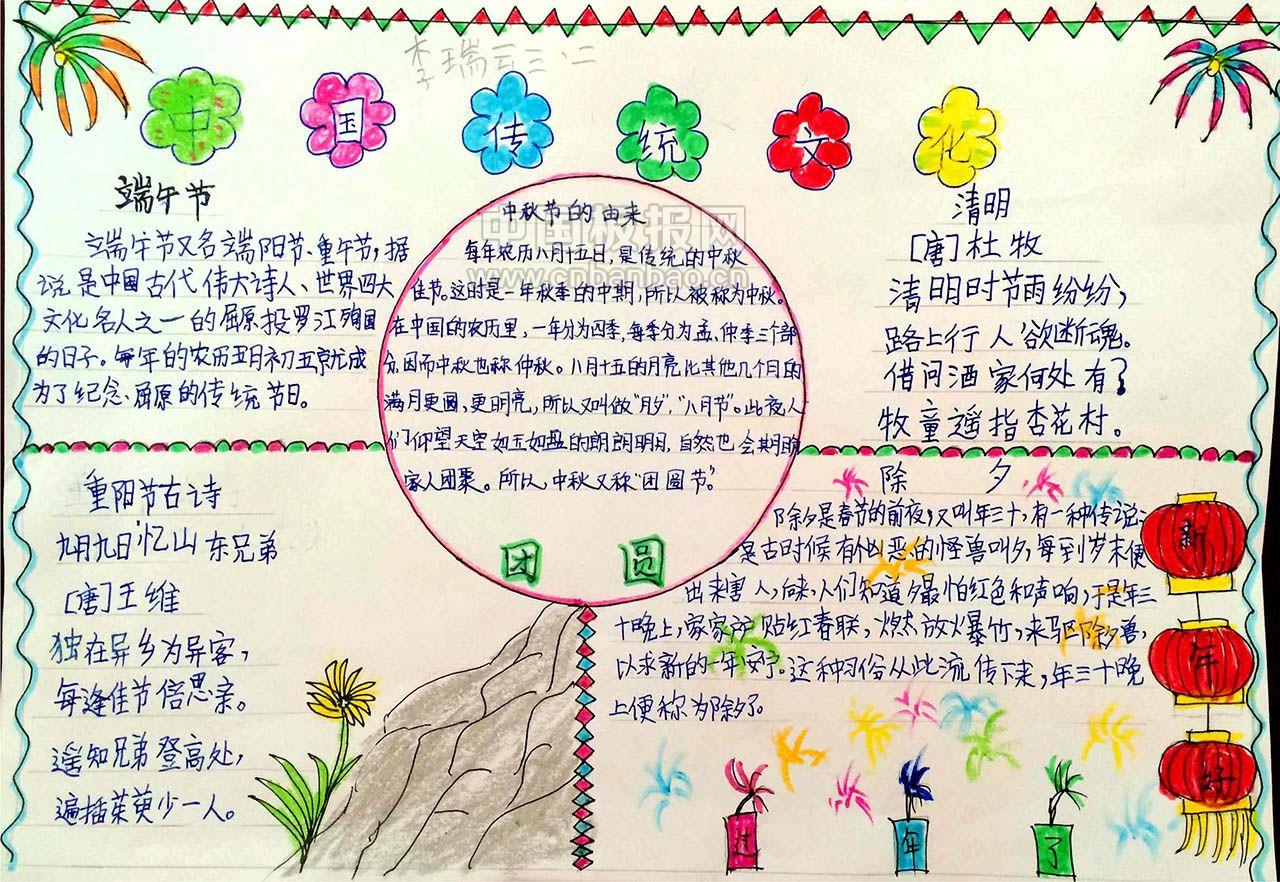 李瑞云三.二
中国传统文化
端午节
端午节又名端阳节、重午节,据
说是中国古代伟大诗人、世界四大
文化名人之一的屈原投罗江殉国
的日子。每年的农历五月初五就成
为了纪念、屈原的传统节日。
中秋节的由来
每年农历八月十五日,是传统的中秋
佳节。这时是一年秋季的中期,所以被称为中秋。
在中国的农历里,一年分为四季,每季分为孟、仲季三个部
分,因而中秋也称仲秋。八月十五的月亮比其他几个月的
满月更圆,更明亮,所以又叫做"月夕","八月节"。此夜,人
们仰望天空如玉如盘的朗朗明月,自然也会期盼
家人团聚。所以,中秋又称"团圆节"。
团圆
中国板报网
www.cnbanbao.cn
清明
[唐]杜牧
清明时节雨纷纷,
路上行人欲断魂。
借问酒家何处有?
牧童遥指杏花村。
重阳节古诗
九月九日忆山东兄弟
[唐]王维
独在异乡为异客,
每逢佳节倍思亲。
遥知兄弟登高处,
遍插茱萸少一人。
除夕
除夕是春节的前夜,又叫年三十,有一种传说:
是古时候有凶恶的怪兽叫夕,每到岁末便
出来害人,后来,人们知道夕最怕红色和声响,于是年三
十晚上,家家户户贴红春联,燃放火暴竹,来驱除夕兽,
以求新的一年安宁。这种习俗从此流传下来,年三十晚
上便称为除夕了。
新年好
过年了